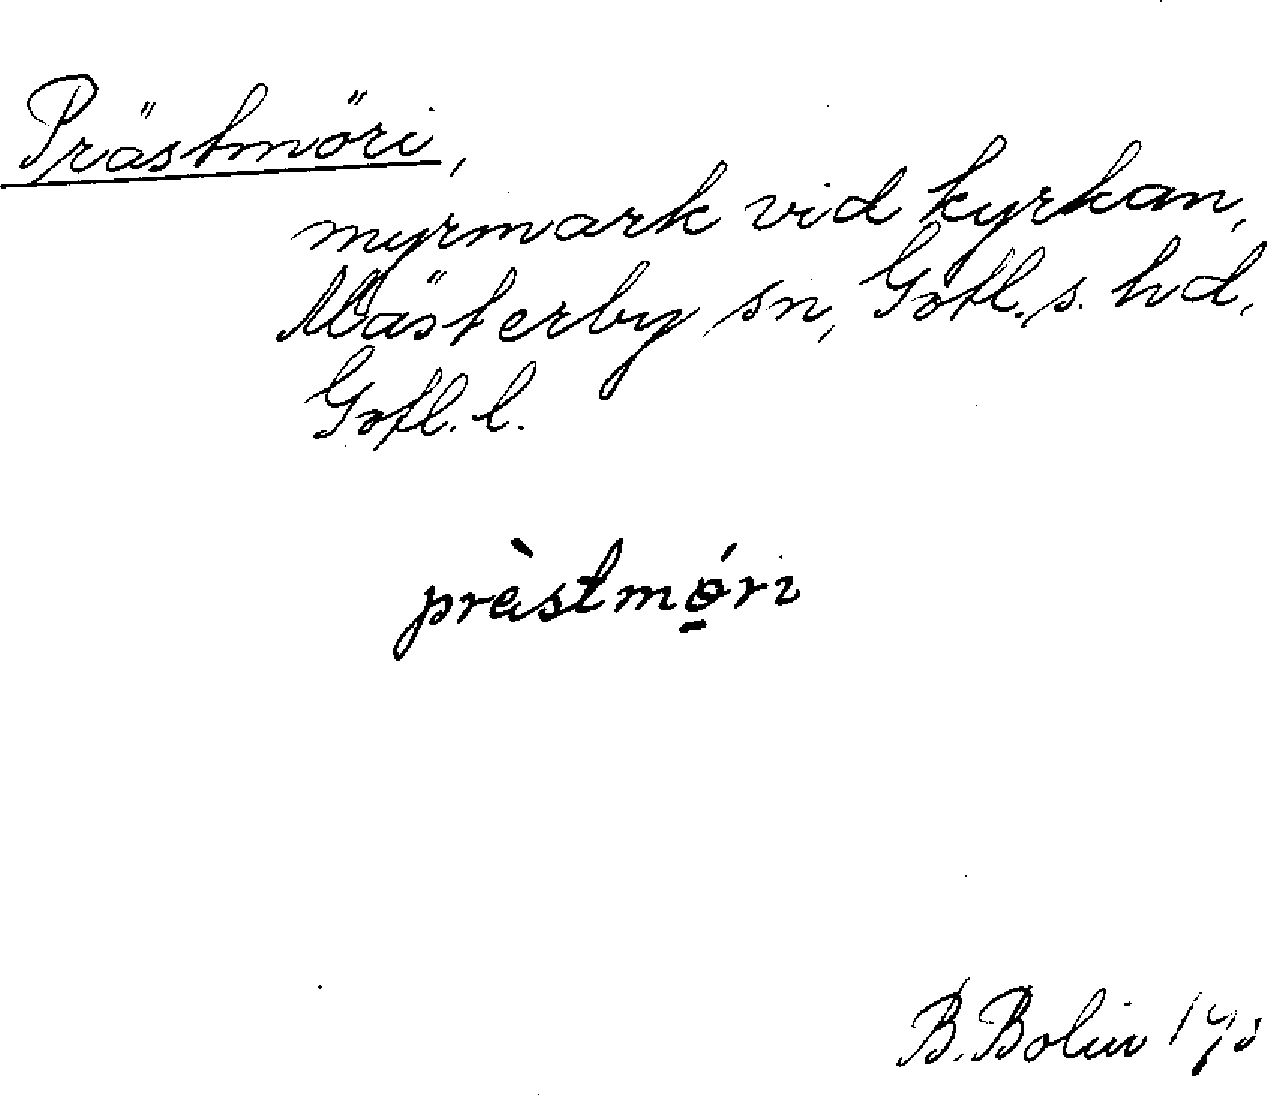 Prästmöri,
myrmark vid kyrkan,
Mästerby sn, Gotl. s. hd,
Gotl. l.
prästmöri
B. Bolin